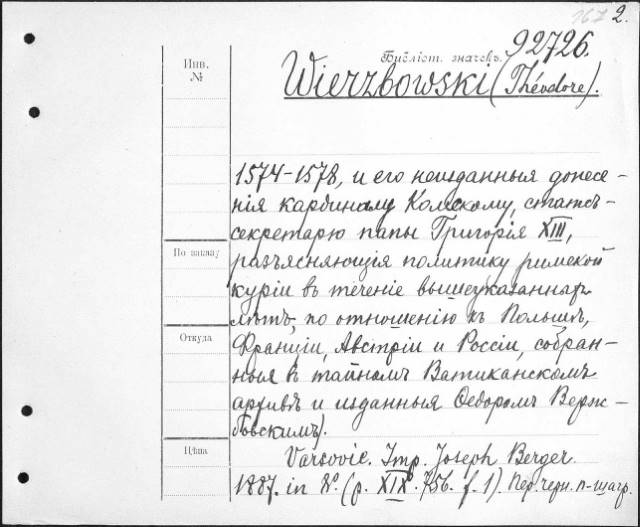 167 2.
Библіот. значекъ. 92726.
Инв.
№
Wierzbowski (Théodore).
1574-1578, и его неизданныя донесе-
нія кардиналу Комскому, статсъ-
секретарю папы Григорія XIII,
По заказу
разъясняющія политику римской
куріи въ теченіе вышеуказанныхъ
лѣтъ, по отношенію къ Польшѣ,
Откуда
Франціи, Австріи и Россіи, собран-
ныя въ тайномъ Ватиканскомъ
архивѣ и изданныя Ѳедоромъ Верж-
бовскимъ).
Цѣна
Varsovie. Imp. Joseph Berger.
1887. in 8°. (p. XIX. 756. f. 1). Пер. черн. п-шагр.